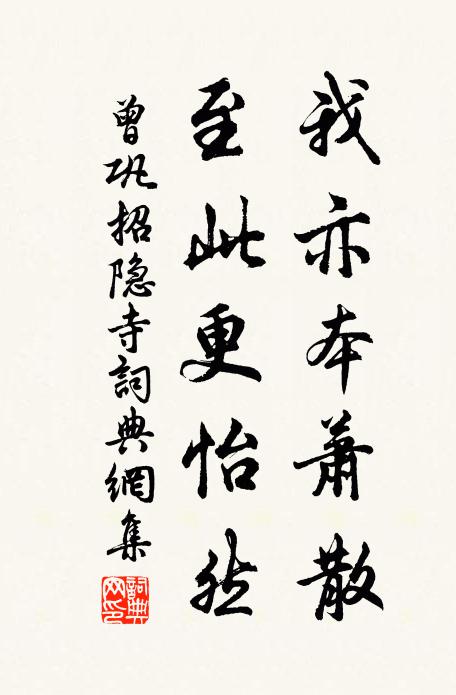 我亦本萧散
至此更怡然
曾巩招隐寺詞典網集
詞典
网印